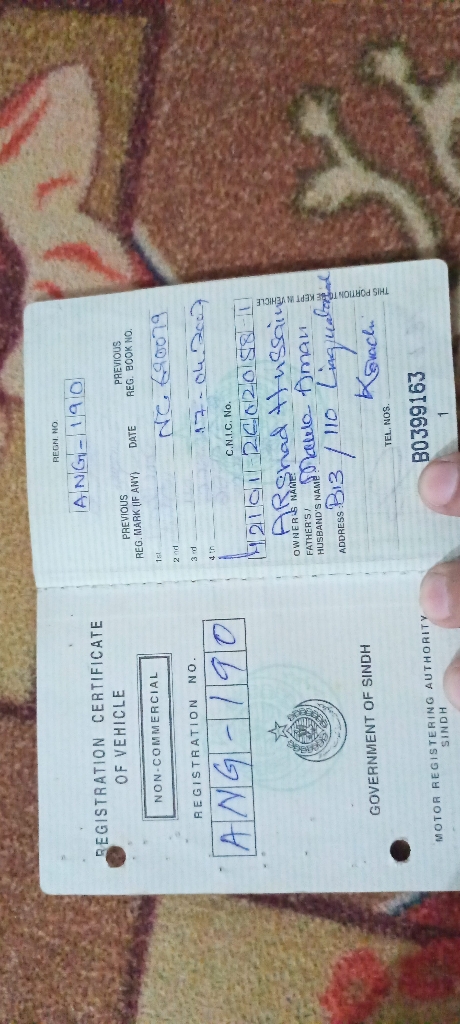 REGISTRATION CERTIFICATE
OF VEHICLE
NON-COMMERCIAL
REGISTRATION NO.
ANG-190
GOVERNMENT OF SINDH
MOTOR REGISTERING AUTHORITY
SINDH
REGN. NO.
ANG-190
PREVIOUS
REG. MARK (IF ANY)
DATE
PREVIOUS
REG. BOOK NO.
1st
NC, 690079
2nd
3rd
17-04-2007
4th
C.N.I.C. No.
OWNER'S NAME ARShad Hussain
FATHER'S /
HUSBAND'S NAME
ADDRESS B13 / 110
Karachi
TEL. NOS.
THIS PORTION TO BE KEPT IN VEHICLE
B0399163
1